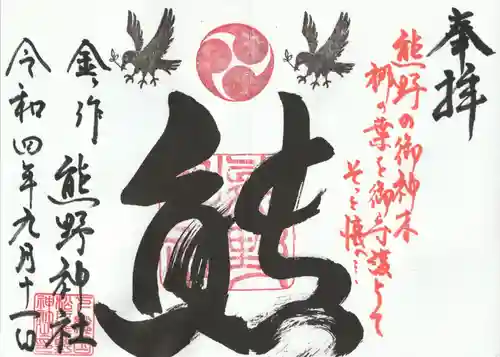 奉拝
熊野の御神木
梛の葉を御守護として
そっと懐へ…
熊
金作 熊野神社
令和四年九月十一日